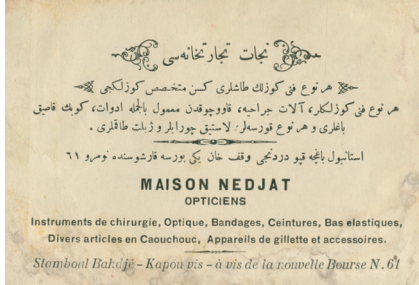 نجات تجارتخانه‌سی
هر نوع فنی كوزلك طاشلری كسن متخصص كوزلكجی
هر نوع فنی كوزلكلر، آلات جراحیه، قاووچوقدن معمول بالجمله ادوات، كوبك قاصیق
باغلری و هر نوع قورسه‌لر؛ لاستیق چورابلر و ژیلت طاقملری .
استانبول باغچه قپو دردنجی وقف خان یكی بورسه قارشوسنده نومرو ٦١
MAISON NEDJAT
OPTICIENS
Instruments de chirurgie, Optique, Bandages, Ceintures, Bas elastiques,
Divers articles en Caoutchouc, Appareils de gillette et accessoires.
Stamboul Bahdjé - Kapou vis - à vis de la nouvelle Bourse N. 61